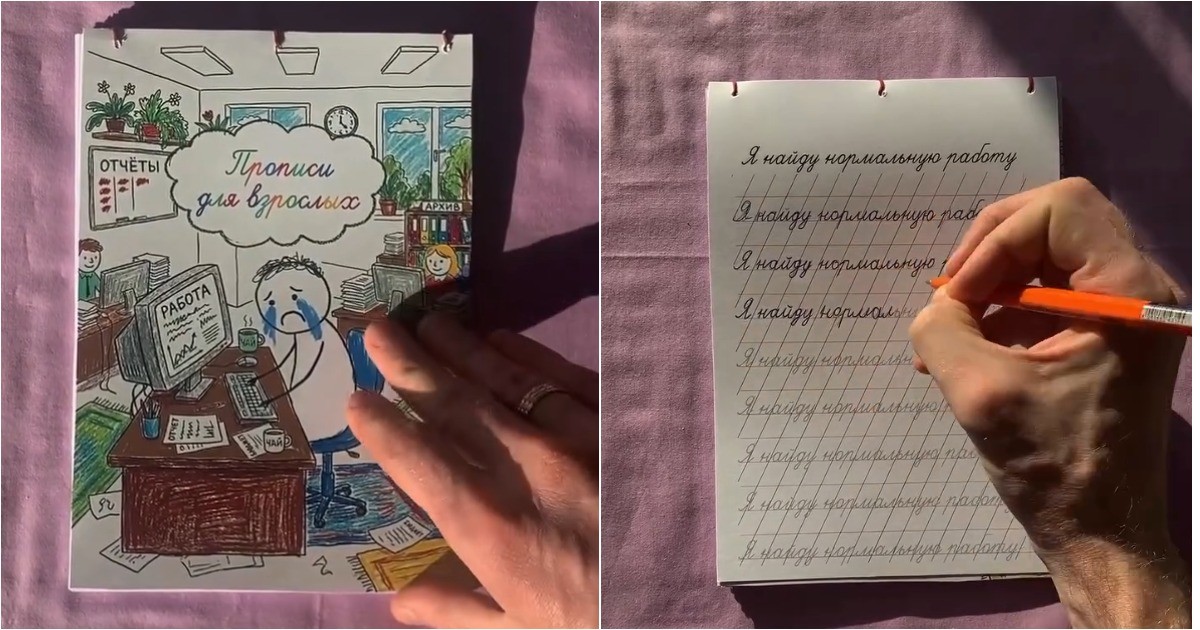 Прописи
для взрослых
ОТЧЁТЫ
АРХИВ
РАБОТА
ЧАЙ
ОТЧЁТ
ЧАЙ
Я найду нормальную работу
Я найду нормальную
Я найду нормальную
Я найду
Я найду
Я найду нормальную
Я найду нормальную
Я найду нормальную работу
Я найду нормальную работу